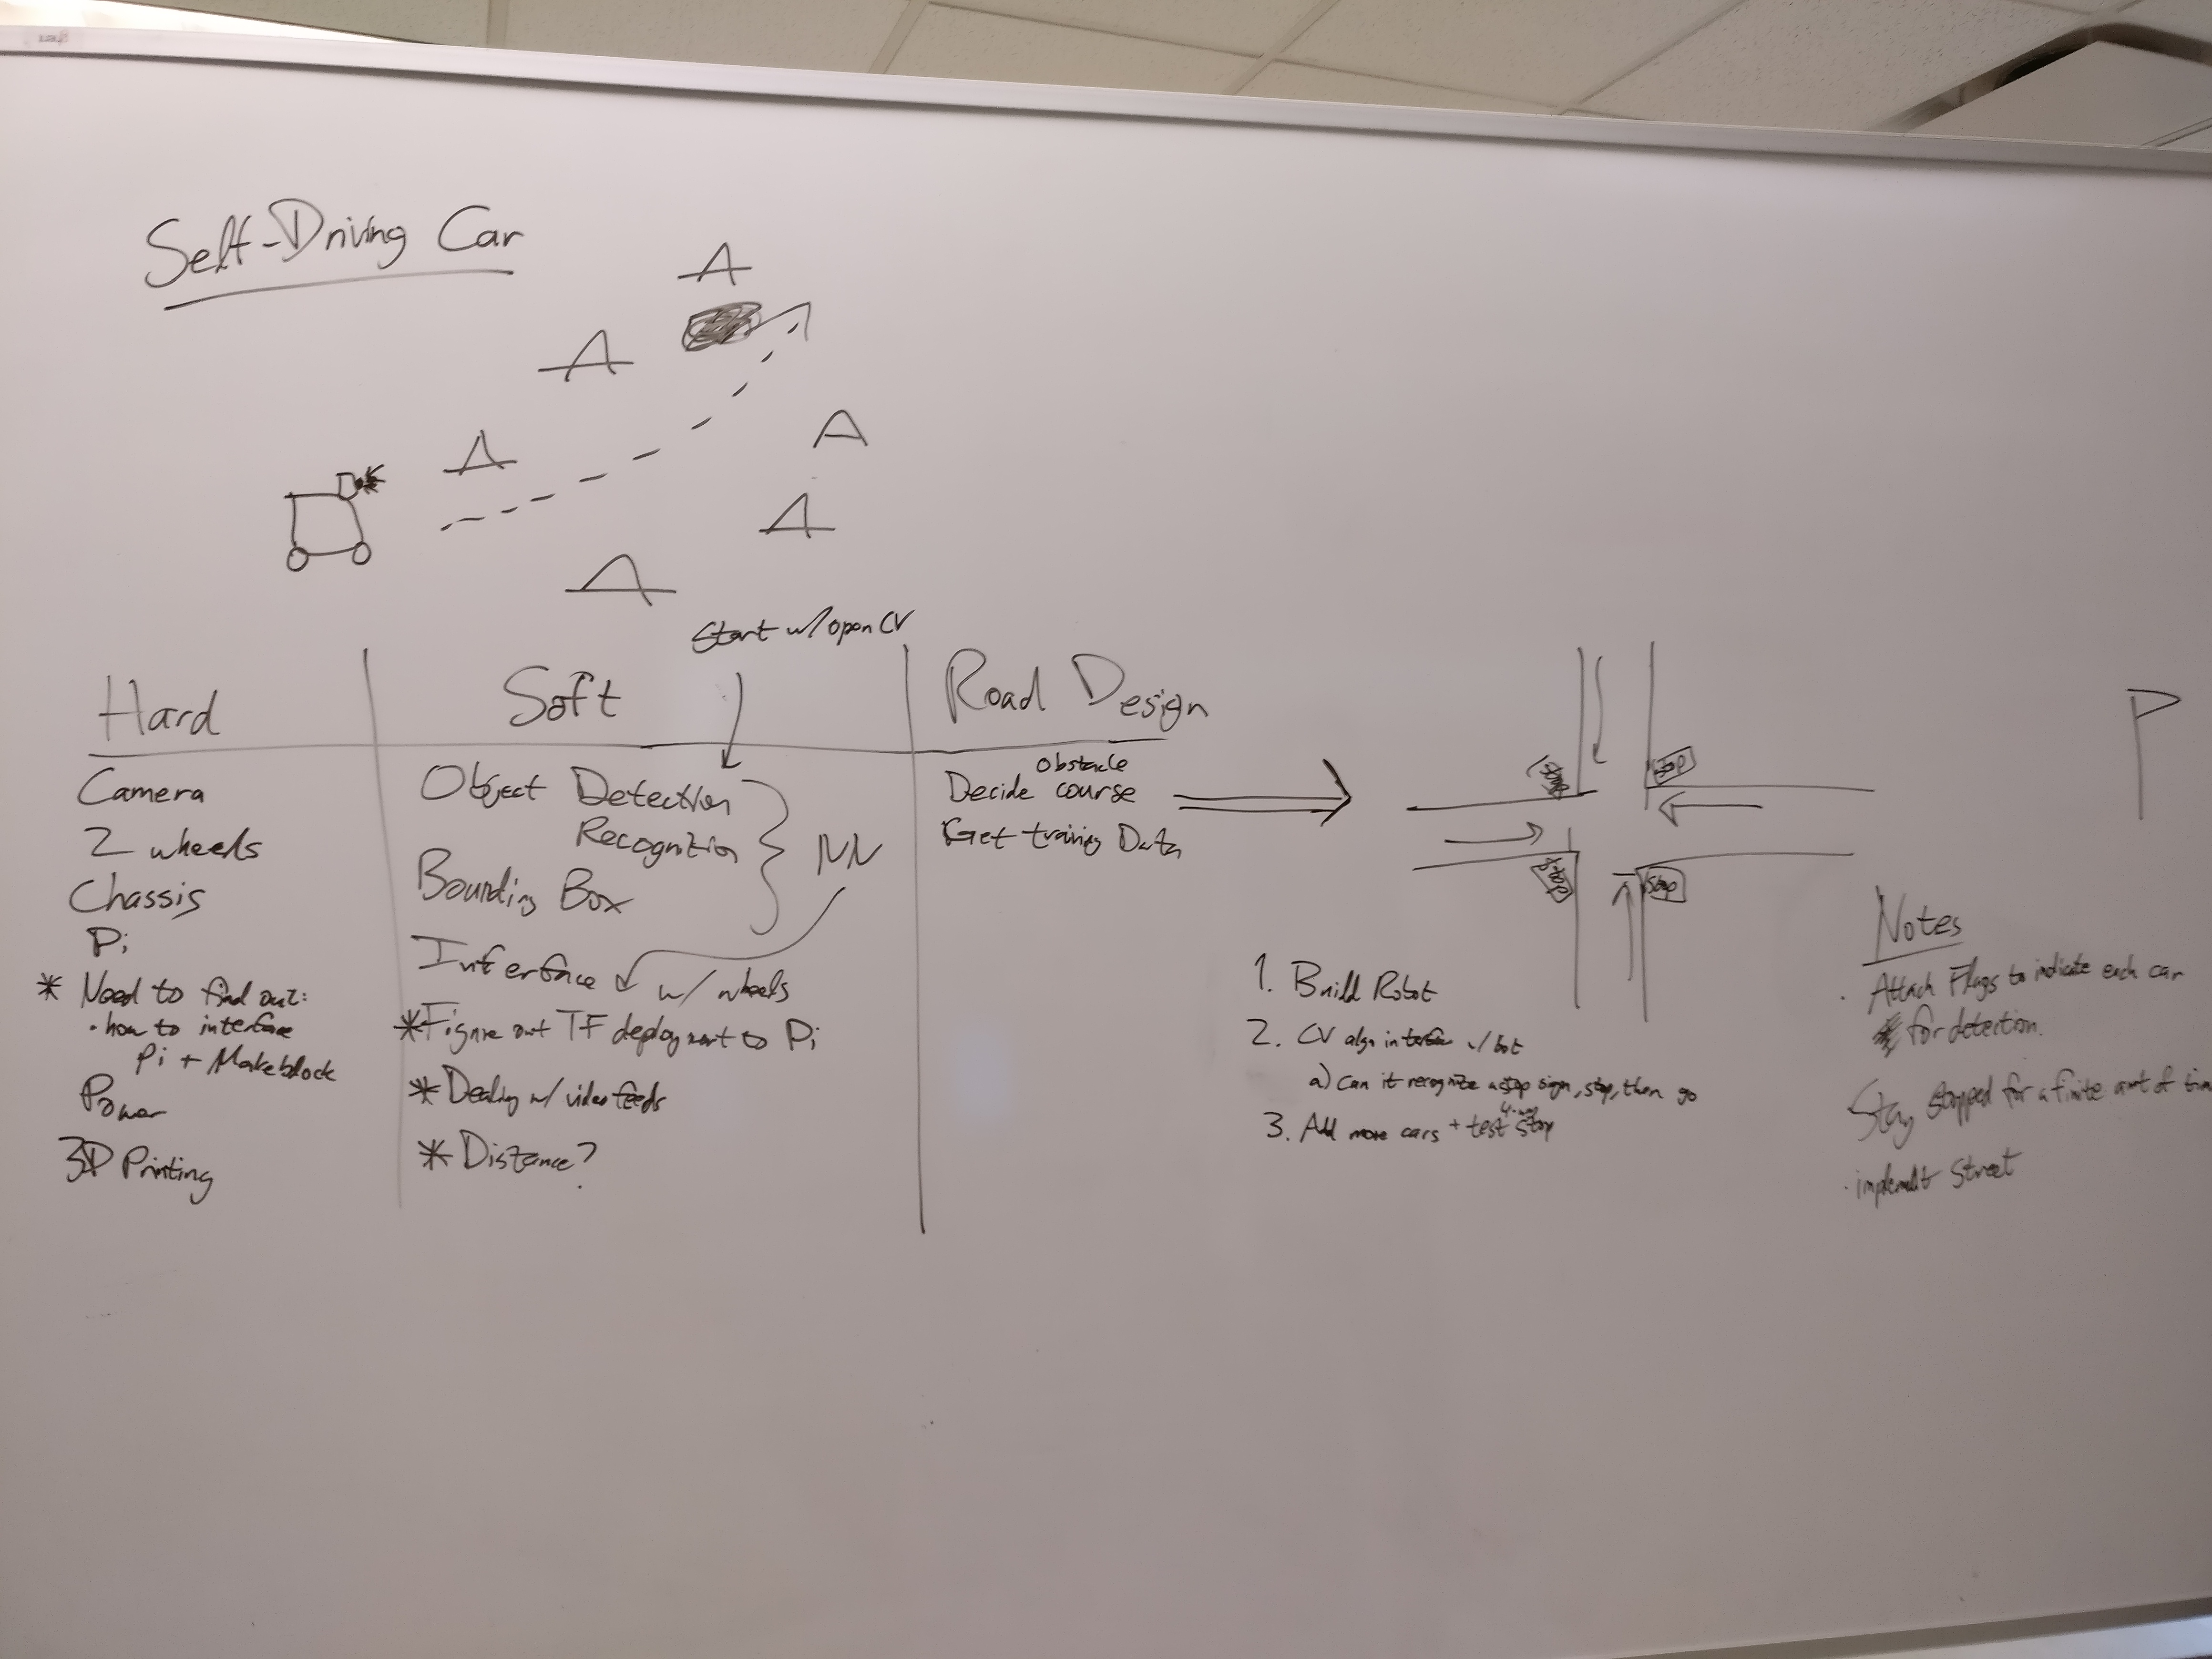 Self-Driving Car
Start w/ open CV
Hard
Camera
2 wheels
Chassis
Pi
* Need to find out:
· how to interface
Pi + Makeblock
Power
3D Printing
Soft
Object Detection
Recognition
Bounding Box
NN
Interface w/ wheels
* Figure out TF deployment to Pi
* Dealing w/ video feeds
* Distance?
Road Design
Obstacle
Decide course
Get training Data
Stop
Stop
Stop
Stop
1. Build Robot
2. CV algn interface w/ bot
a) Can it recognize a stop sign, stop, then go
3. Add more cars + test 4-way stop
Notes
· Attach Flags to indicate each car
for detection.
Stay stopped for a finite amt of time
· implement Street